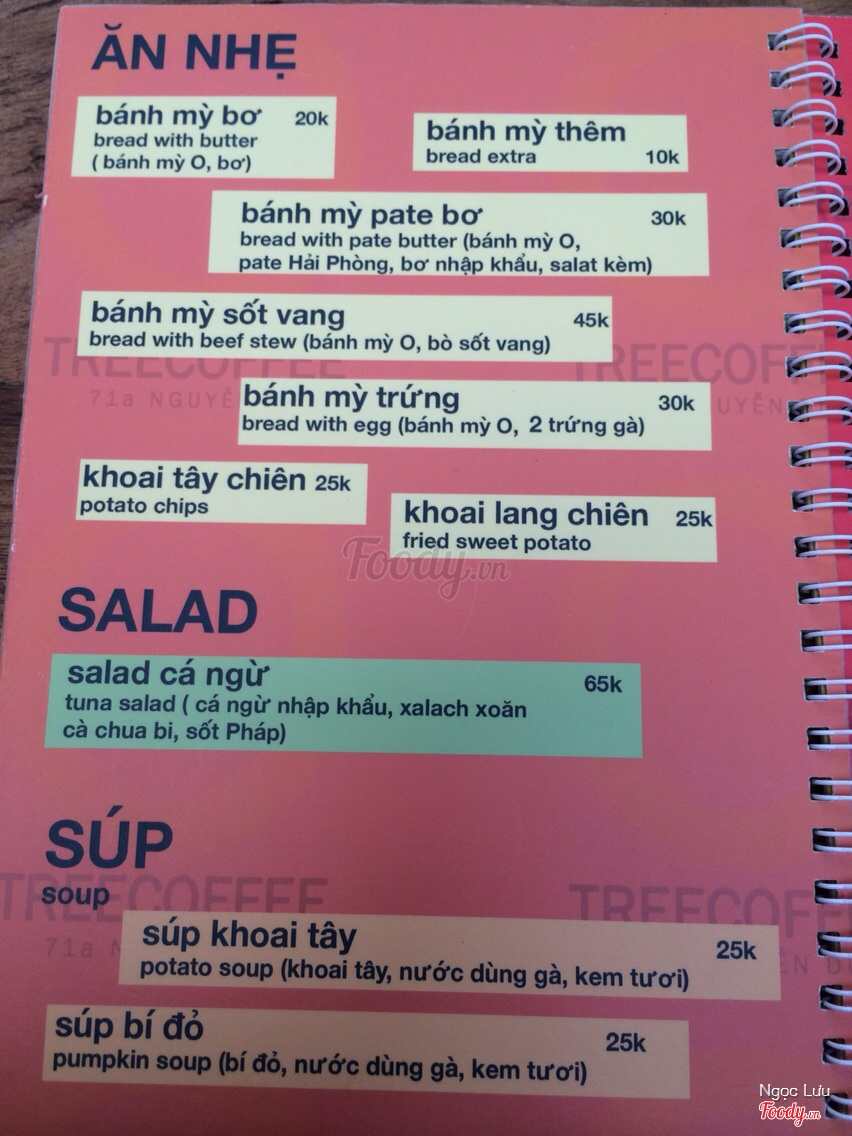 ĂN NHẸ
bánh mỳ bơ 20k
bread with butter
( bánh mỳ O, bơ)
bánh mỳ thêm
bread extra 10k
bánh mỳ pate bơ 30k
bread with pate butter (bánh mỳ O,
pate Hải Phòng, bơ nhập khẩu, salat kèm)
bánh mỳ sốt vang 45k
bread with beef stew (bánh mỳ O, bò sốt vang)
TREECOFFEE TREECOFFE
71a NGUYỄ UYỄN
bánh mỳ trứng 30k
bread with egg (bánh mỳ O, 2 trứng gà)
khoai tây chiên 25k
potato chips
khoai lang chiên 25k
fried sweet potato
Foody.vn
SALAD
salad cá ngừ 65k
tuna salad ( cá ngừ nhập khẩu, xalach xoăn
cà chua bi, sốt Pháp)
SÚP
soup
TREECOFFEE TREECOFFE
71a N ỄN D
súp khoai tây 25k
potato soup (khoai tây, nước dùng gà, kem tươi)
súp bí đỏ 25k
pumpkin soup (bí đỏ, nước dùng gà, kem tươi)
Ngọc Lưu
Foody.vn